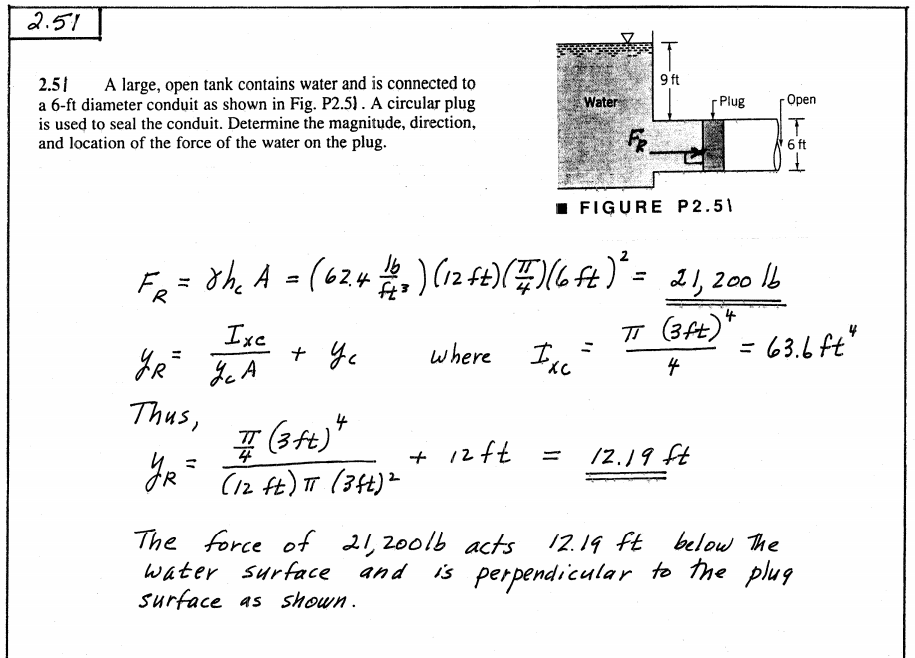 2.51
2.51 A large, open tank contains water and is connected to
a 6-ft diameter conduit as shown in Fig. P2.51. A circular plug
is used to seal the conduit. Determine the magnitude, direction,
and location of the force of the water on the plug.
9 ft
Water
Plug
Open
F_R
6 ft
■ FIGURE P2.51
F_R = γh_c A = (62.4 lb/ft³)(12 ft)(π/4)(6 ft)² = 21,200 lb
y_R = I_xc / y_c A + y_c where I_xc = π (3ft)⁴ / 4 = 63.6 ft⁴
Thus,
y_R = π/4 (3ft)⁴ / (12 ft) π (3ft)² + 12 ft = 12.19 ft
The force of 21,200 lb acts 12.19 ft below the
water surface and is perpendicular to the plug
surface as shown.